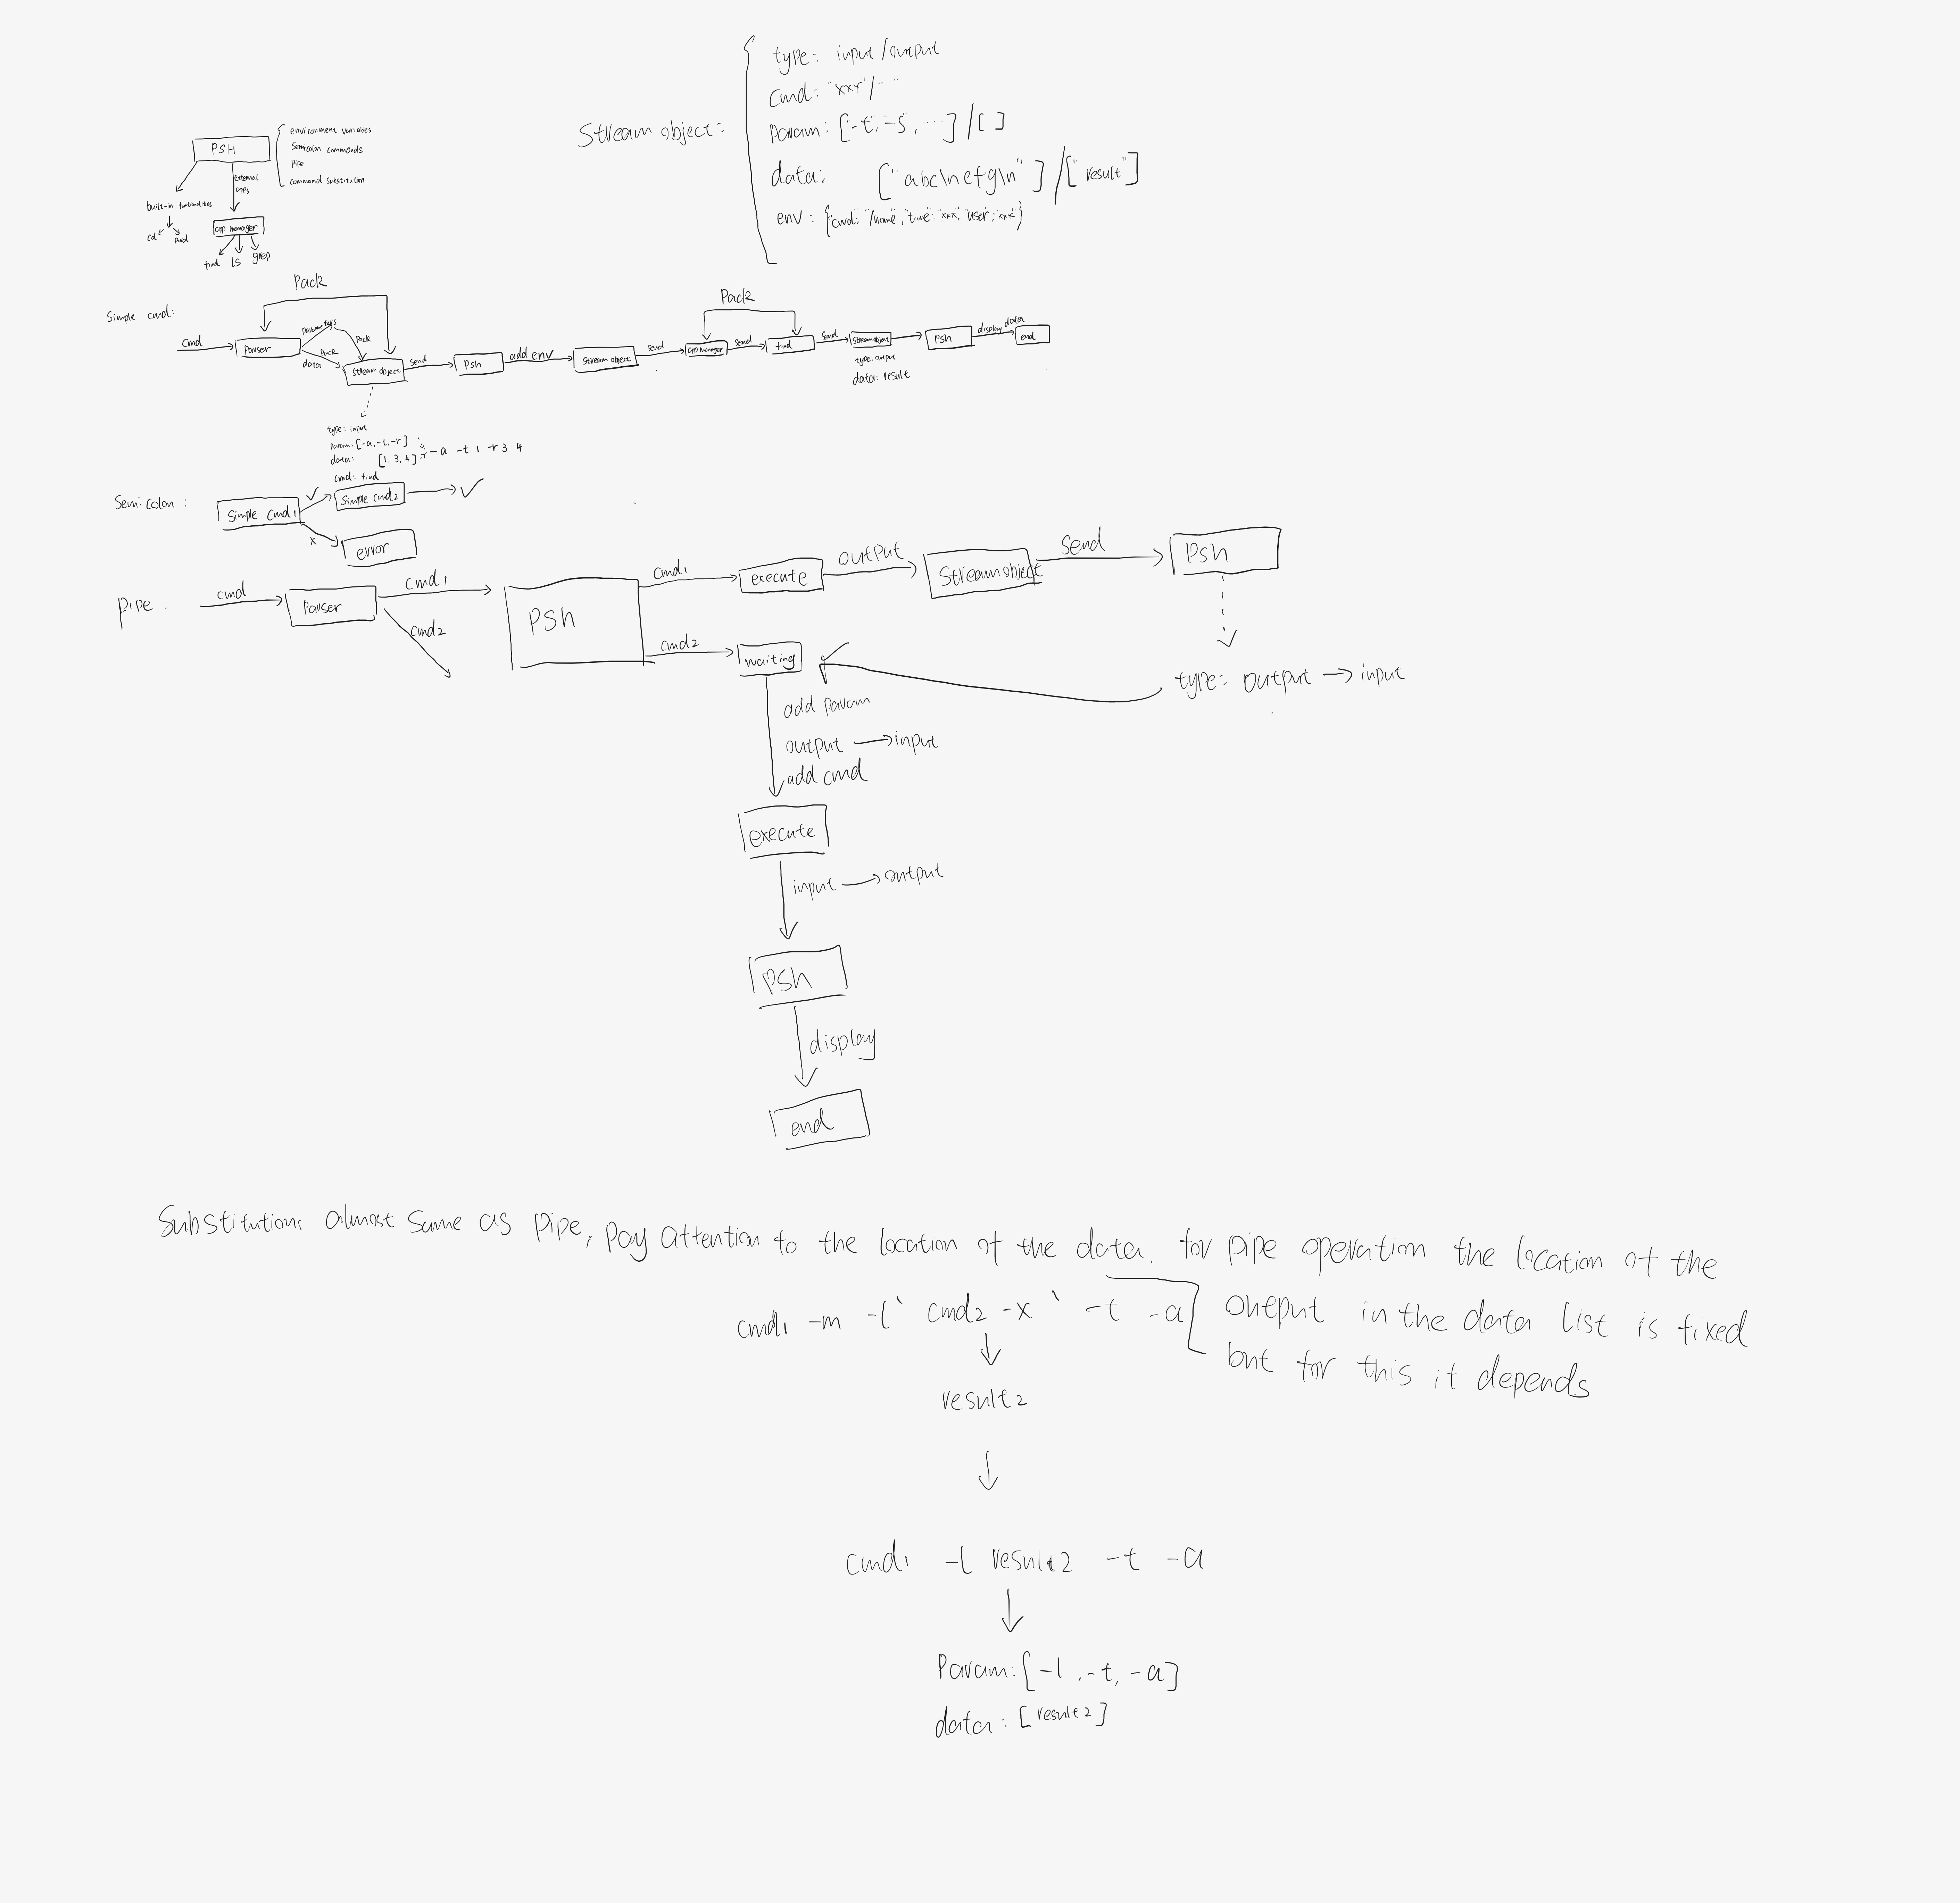 PSH
environment variables
Semicolon commands
Pipe
command substitution
external
apps
built-in funtionalities
cd
pwd
app manager
find ls grep
Stream object:
type: input/output
cmd: "xxx"/" "
param: [-t, -s, ....] / [ ]
data: ["abc\nefg\n"] / ["result"]
env: {"cwd": "/home", "time": "xxx", "user": "xxx"}
Simple cmd:
Pack
cmd
Parser
parameters
Pack
Pack
data
Stream object
send
Psh
add env
Stream object
send
Pack
app manager
send
find
send
Stream object
type: output
data: result
Psh
display data
end
type: input
param: [-a, -t, -r]
data: [1, 3, 4]
-a -t 1 -r 3 4
cmd: find
Semicolon:
Simple cmd1
✓
Simple cmd2
✓
x
error
Pipe:
cmd
Parser
cmd1
cmd2
Psh
cmd1
execute
output
Stream object
Send
Psh
cmd2
waiting
type: output → input
add param
output → input
add cmd
execute
input → output
Psh
display
end
Substitution: almost same as pipe, pay attention to the location of the data. for pipe operation the location of the
output in the data list is fixed
but for this it depends
cmd1 -m -l ` cmd2 -x ` -t -a
result2
cmd1 -l result2 -t -a
Param: [-l, -t, -a]
data: [result2]